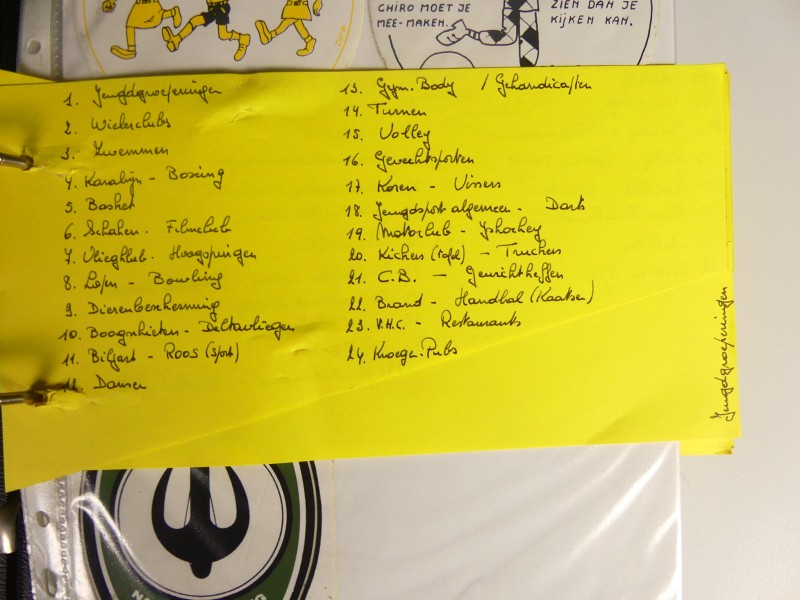 CHIRO MOET JE
MEE-MAKEN.
ZIEN DAN JE
KIJKEN KAN.
1. Jeugdgroeperingen
2. Wielerclubs
3. Zwemmen
4. Karabijn - Boxing
5. Basket
6. Schaken - Filmclub
7. Vliegklub - Hoogspringen
8. Lopen - Bowling
9. Dierenbescherming
10. Boogschieten - Deltavliegen
11. Biljart - Roos (Sport)
12. Dansen
13. Gym. Body / Gehandicapten
14. Turnen
15. Volley
16. Gevechtsporten
17. Koren - Vissers
18. Jeugdsport algemeen - Darts
19. Motorclub - Yshockey
20. Kickers (tafel) - Truckers
21. C.B. - Gewichtheffen
22. Brand - Handbal (Kaatsen)
23. V.H.C. - Restaurants
24. Kroegen-Pubs
Jeugdgroeperingen